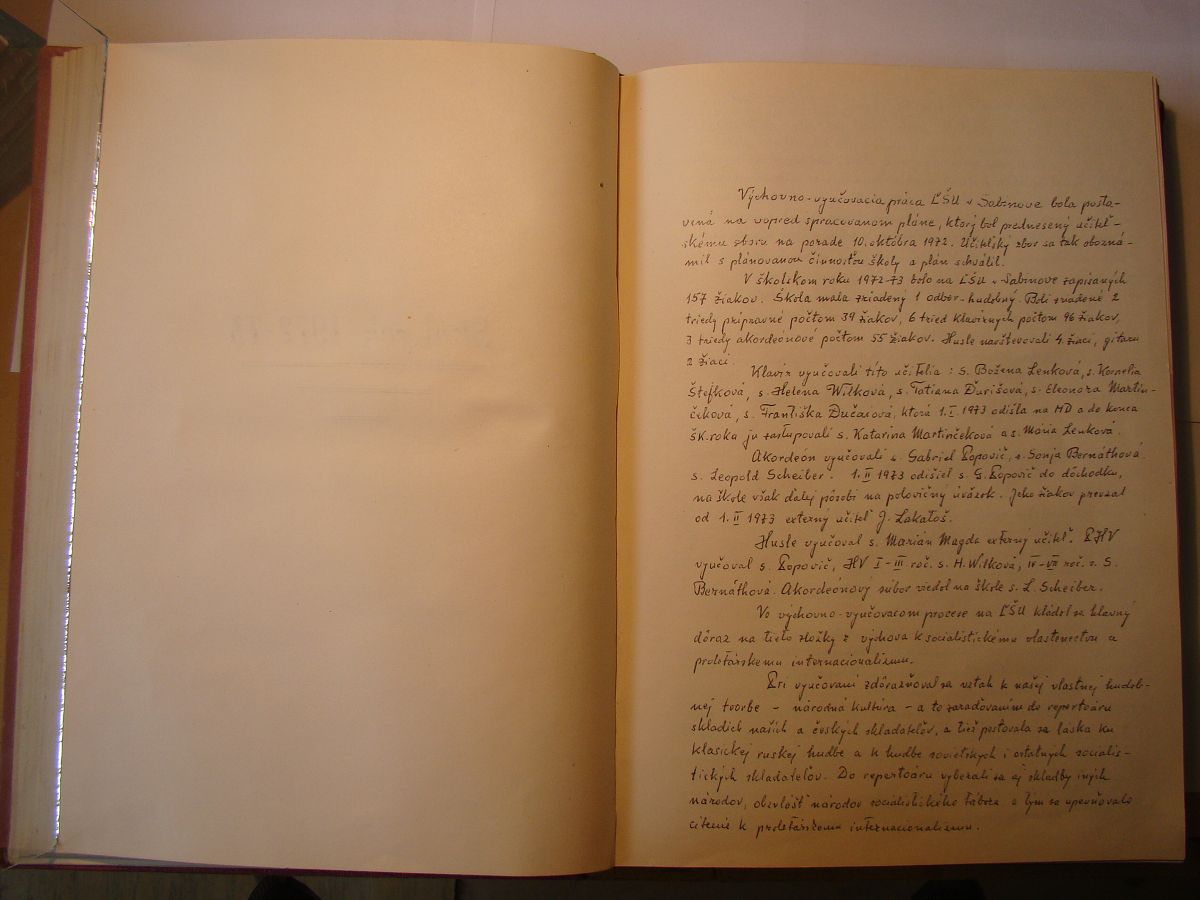 Výchovno-vyučovacia práca ĽŠU v Sabinove bola posta-
vená na vopred spracovanom pláne, ktorý bol prednesený učiteľ-
skému zboru na porade 10. októbra 1972. Učiteľský zbor sa tak oboznámil
mil s plánovanou činnosťou školy a plán schválil.
V školskom roku 1972-73 bolo na ĽŠU v Sabinove zapísaných
157 žiakov. Škola mala zriadený 1 odbor - hudobný. Boli zriadené 2
triedy prípravné počtom 39 žiakov, 6 tried klavírnych počtom 96 žiakov,
3 triedy akordeónové počtom 55 žiakov. Husle navštevovali 4 žiaci, gitaru
2 žiaci.
Klavír vyučovali títo učitelia : s. Božena Lenková, s. Kornelia
Štefková, s. Helena Wilková, s. Tatiana Ďurišová, s. Eleonora Martin-
čeková, s. Františka Dučaiová, ktorá 1. I. 1973 odišla na MD a do konca
šk. roka ju zastupovali s. Katarína Martinčeková a s. Mária Lenková.
Akordeón vyučovali s. Gabriel Popovič, s. Sonja Bernáthová,
s. Leopold Scheiber. 1. II 1973 odišiel s. G. Popovič do dôchodku,
na škole však ďalej pôsobí na polovičný úväzok. Jeho žiakov prevzal
od 1. II 1973 externý učiteľ J. Lakatoš.
Husle vyučoval s. Marián Magda externý učiteľ. PHV
vyučoval s. Popovič, HV I - III roč. s. H. Wilková, IV - VII roč. s. S.
Bernáthová. Akordeónový súbor viedol na škole s. L. Scheiber.
Vo výchovno-vyučovacom procese na ĽŠU kládol sa hlavný
dôraz na tieto zložky z výchova k socialistickému vlastenectvu a
proletárskemu internacionalizmu.
Pri vyučovaní zdôrazňoval sa vzťah k našej vlastnej hudob-
nej tvorbe - národná kultúra - a to zaraďovaním do repertoáru
skladieb našich a českých skladateľov, a tiež pestovala sa láska ku
klasickej ruskej hudbe a k hudbe sovietskych i ostatných socialis-
tických skladateľov. Do repertoáru vyberali sa aj skladby iných
národov, obzvlášť národov socialistického tábora a tým sa upevňovalo
cítenie k proletárskemu internacionalizmu.